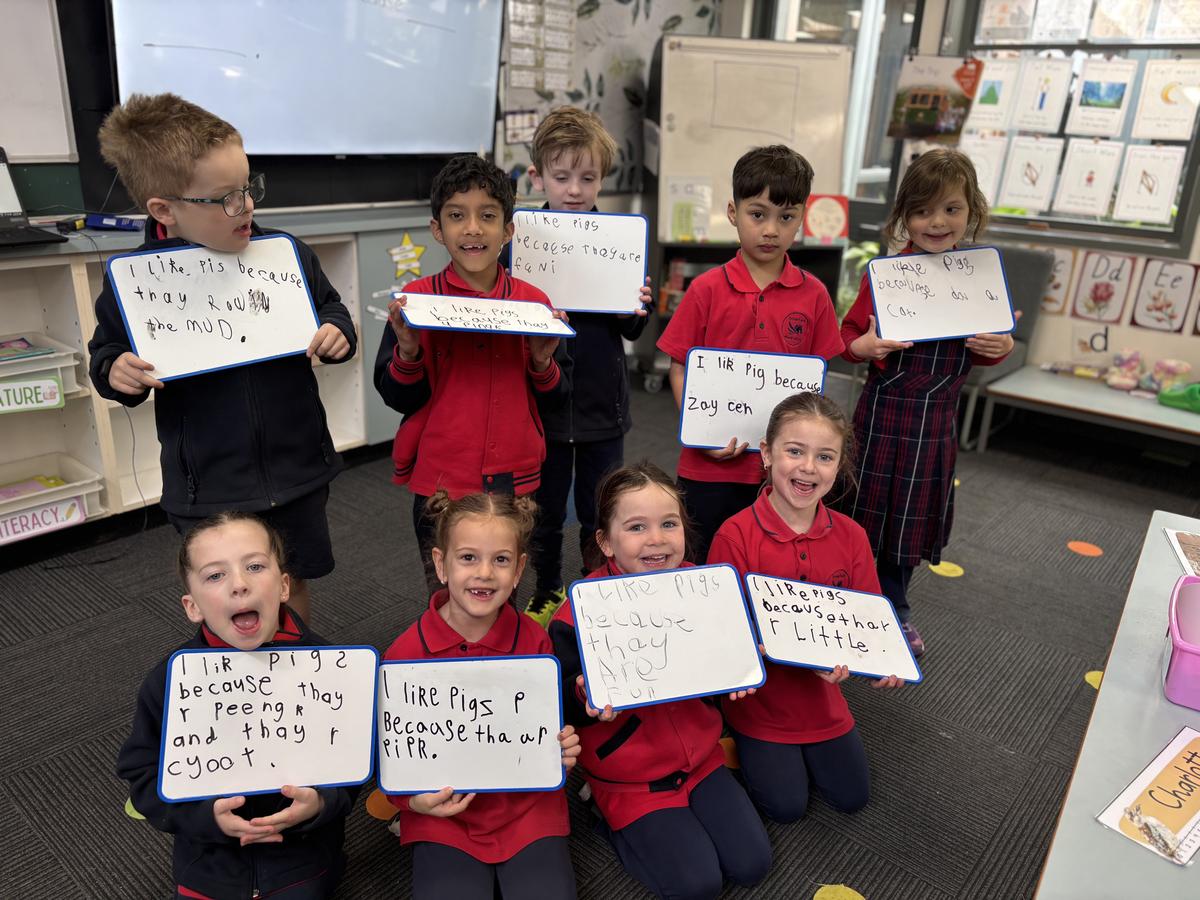 I like pis because
thay
the MUD.
I like pigs
because thay
I like pigs
because thay are
I lik pig because
zay cen
I like Pigs
because
I lik Pigs
because thay
r peeng
and thay r
cyoot.
I like pigs P
Becaase tha ar
PiPR.
I like Pigs
because
thay
Are
Fun
I like pigs
because thar
r Little.
ATURE
LITERACY
The Trip
Dd
Ee
d
Charlott